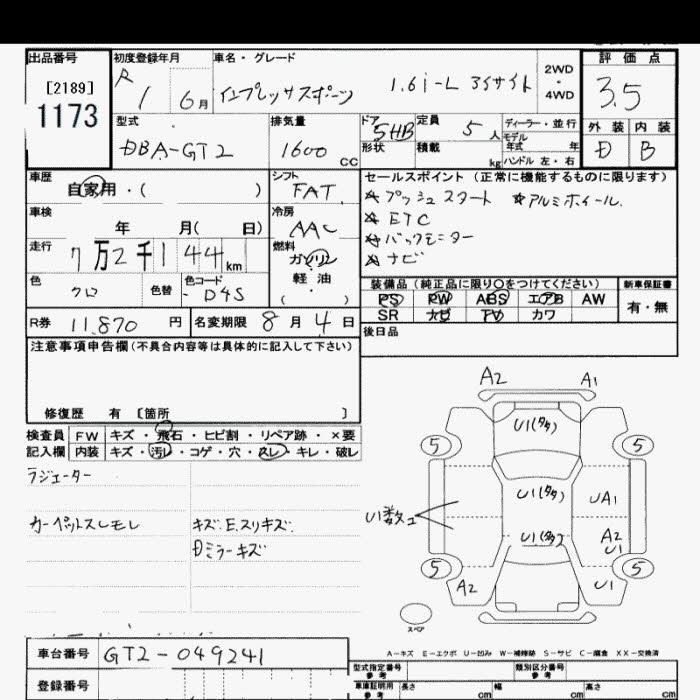 出品番号
[2189]
1173
初度登録年月
R 1 6月
車名・グレード
インプレッサスポーツ 1.6i-L アイサイト
2WD
・
4WD
評価点
3.5
外装 内装
D B
型式
DBA-GT2
排気量
1600 CC
ドア 5HB
形状
定員 5人
積載 kg
ディーラー・並行
モデル
年式 年
ハンドル 左・右
車歴
自家用・( )
シフト
FAT
車検
年 月( 日)
冷房
AAC
走行
7万2千144km
燃料
ガソリン
軽油
( ・ )
色
クロ
色替
色コード
D4S
R券 11,870円
名変期限 8月4日
セールスポイント (正常に機能するものに限ります)
☆プッシュスタート ☆アルミホイール
☆ETC
☆バックモニター
☆ナビ
装備品 (純正品に限り○をつけてください)
新車保証書
PS PW ABS エアB AW
SR ナビ TV カワ
有・無
後日品
注意事項申告欄(不具合内容等は具体的に記入して下さい)
修復歴 有 〔箇所 〕
検査員 FW キズ・飛石・ヒビ割・リペア跡・×要
記入欄 内装 キズ・汚レ・コゲ・穴・スレ・キレ・破レ
ラジエーター
カーペットスレモレ
キズ.E.スリキズ.
Dミラーキズ
A2 A1
U1(タタ)
5 5
U1(タタ) UA1
U1数コ
U1(タタ) A2
U1
5 5
A2 U1
スペア
A-キズ E-エクボ U-凹み W-補修跡 S-サビ C-腐食 XX-交換済
車台番号 GT2-049241
登録番号
型式指定番号
参考
類別区分番号
参考
車庫証明用
参考
長さ cm 幅 cm 高さ cm